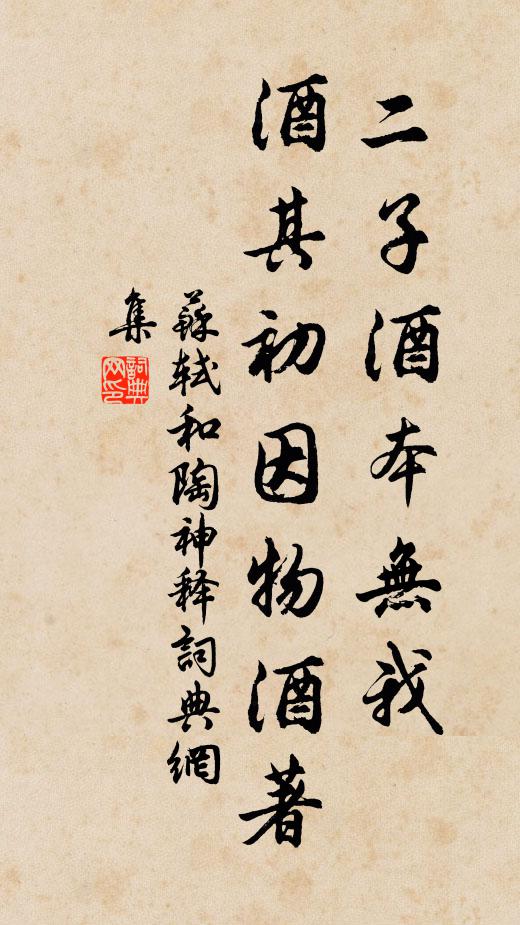 二子酒本無我
酒其初因物酒著
蘇軾和陶神释詞典網
集
詞典网印